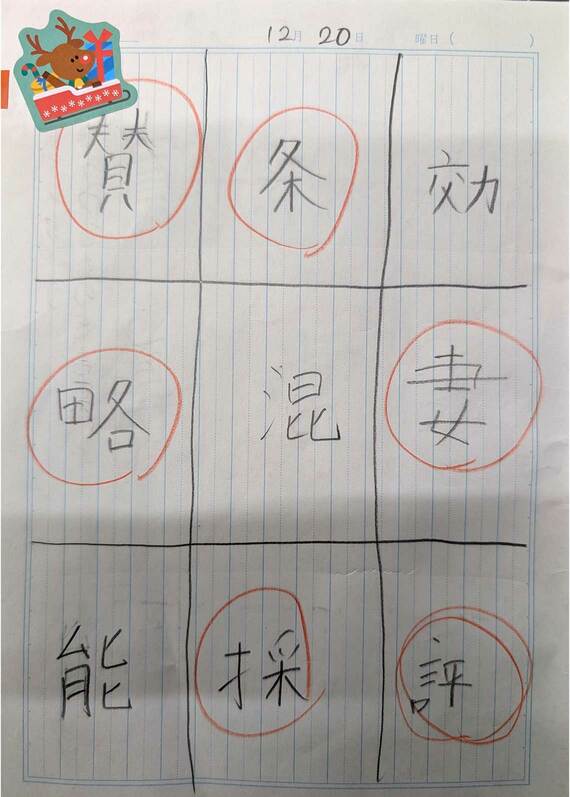 12月20日 曜日( )
賛 条 効
略 混 妻
能 採 評